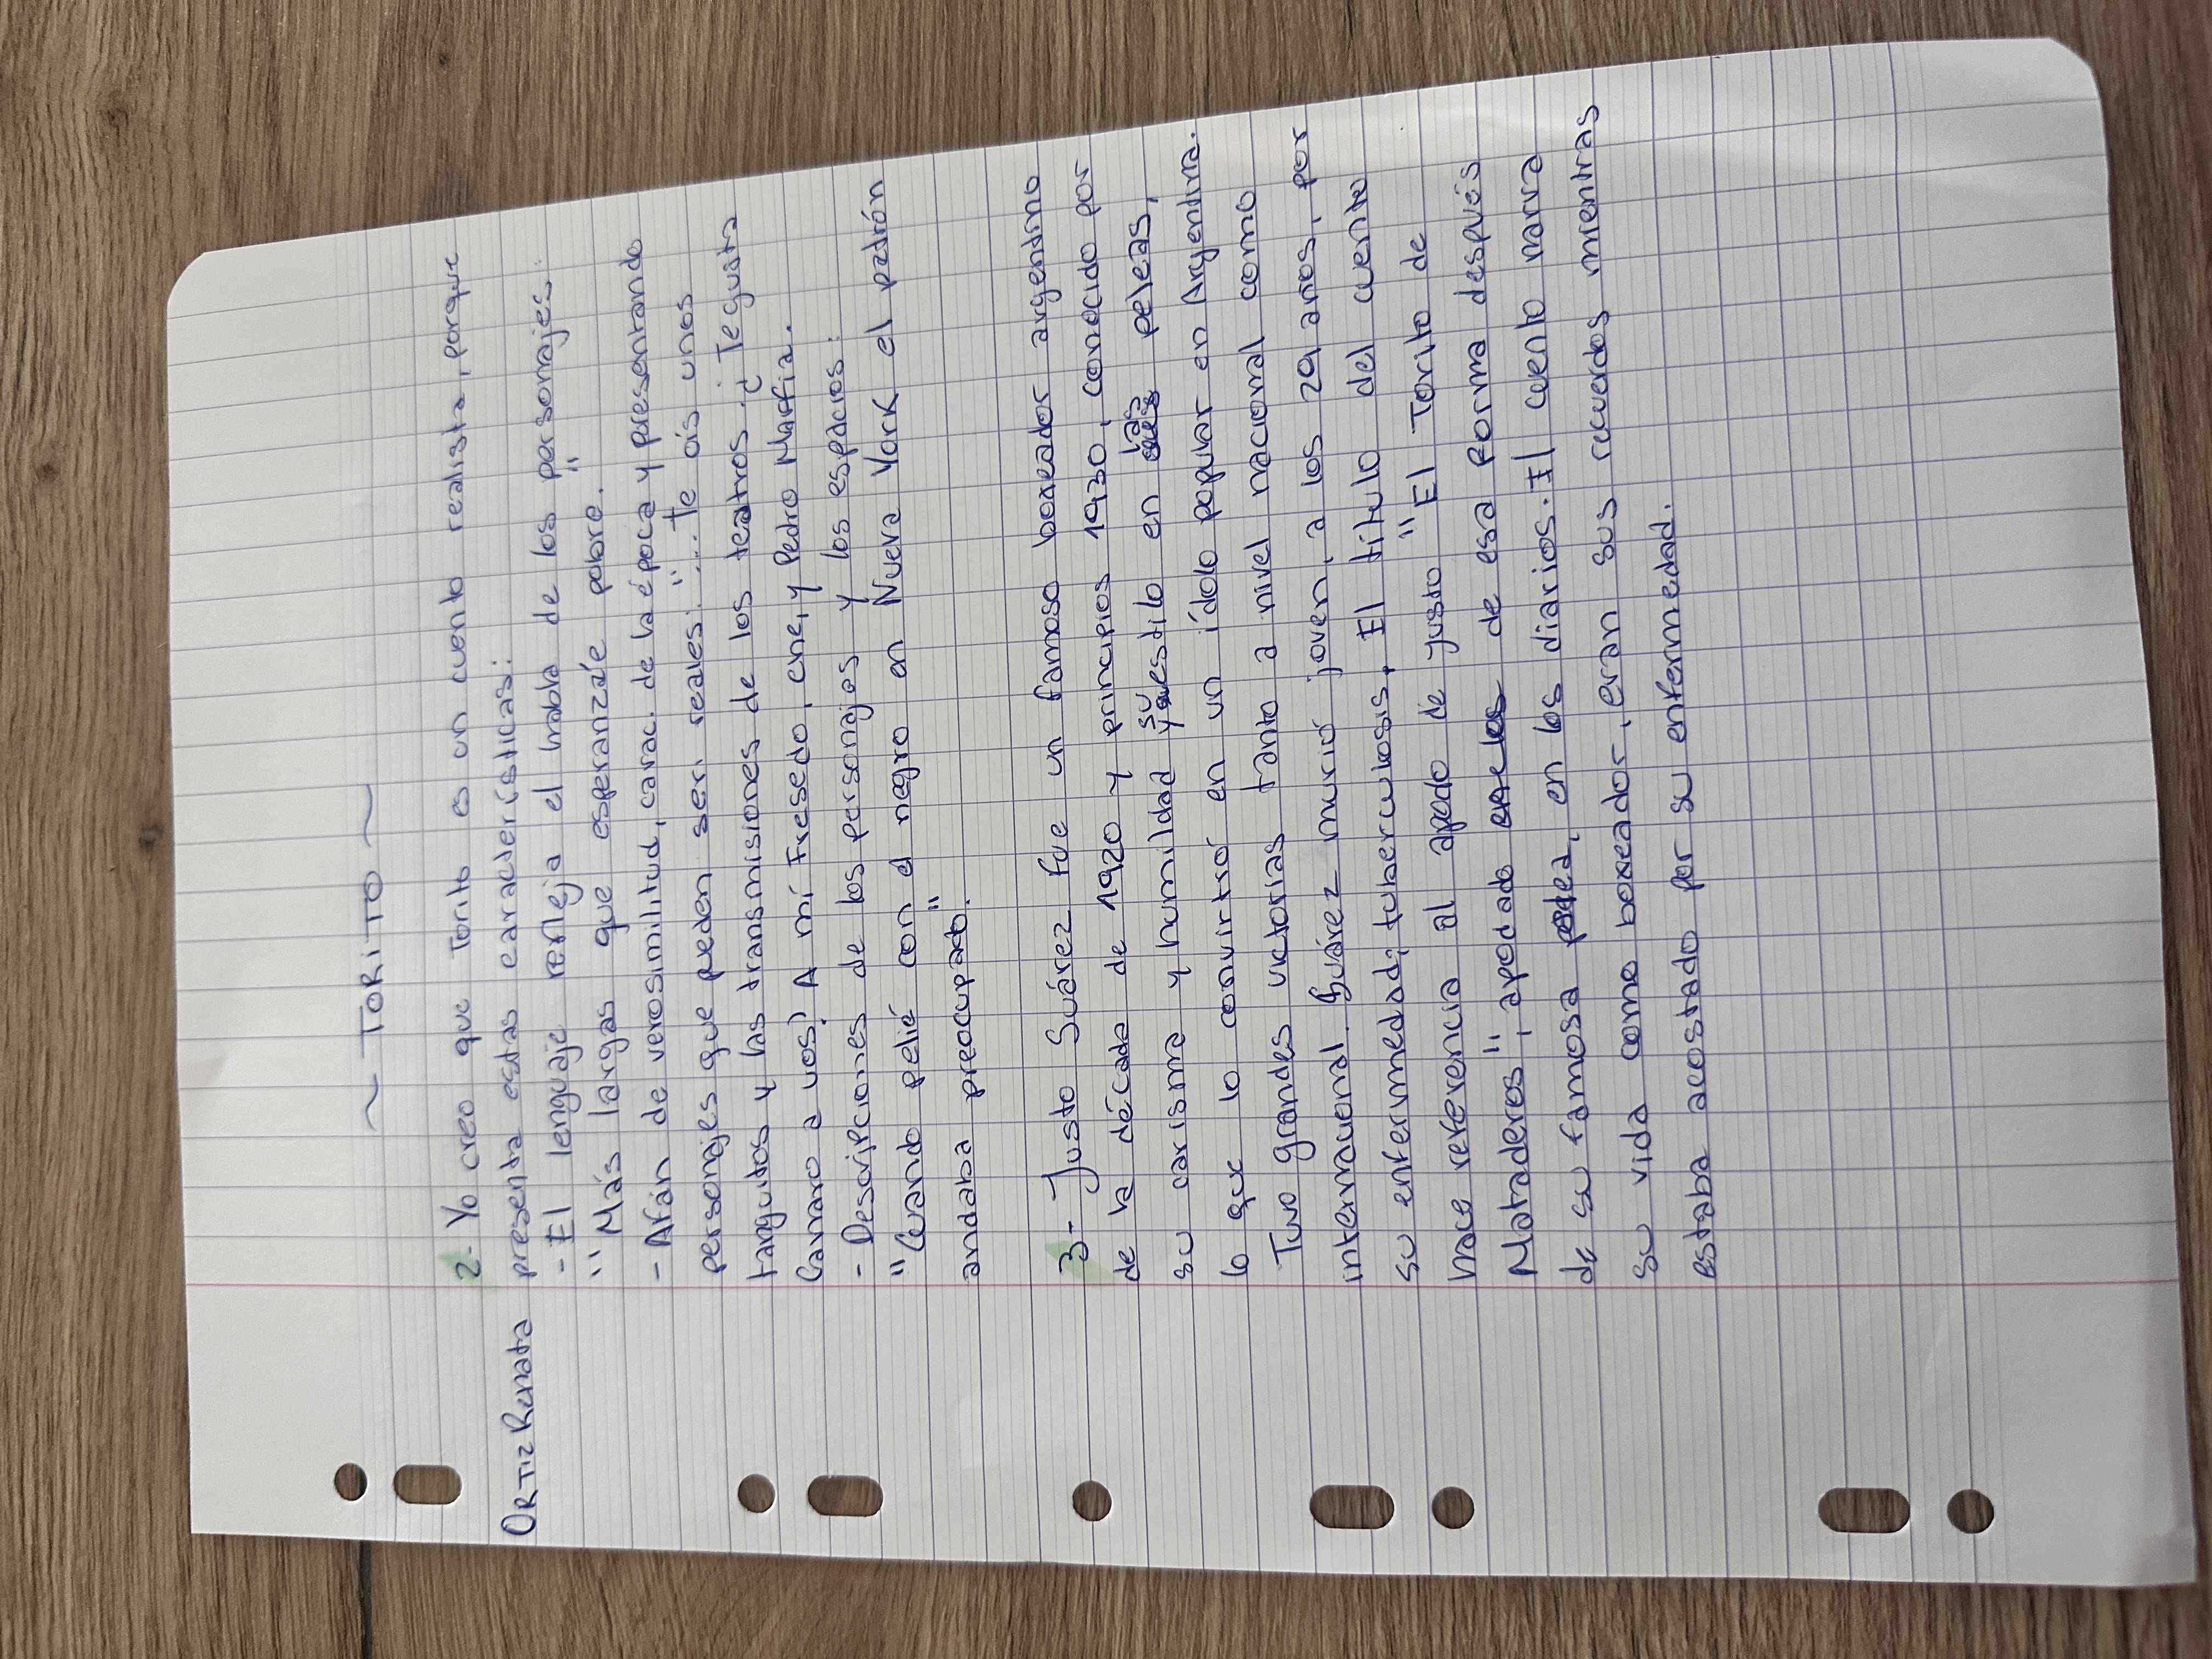 ~ TORITO ~
Ortiz Renata
2- Yo creo que Torito es un cuento realista, porque
presenta estas características:
- El lenguaje refleja el habla de los personajes:
"Más largas que esperanzáe pobre."
- Afán de verosimilitud, carac. de la época y presentando
personajes que pueden ser reales: "... te oís unos
tanguitos y las transmisiones de los teatros. ¿Te gusta
Canaro a vos? A mí Fresedo, che, y Pedro Maffia.
- Descripciones de los personajes y los espacios:
"Cuando pelié con el negro en Nueva York el patrón
andaba preocupado".
3- Justo Suárez fue un famoso boxeador argentino
de la década de 1920 y principios 1930, conocido por
su carisma y humildad y su estilo en las peleas,
lo que lo convirtió en un ídolo popular en Argentina.
Tuvo grandes victorias tanto a nivel nacional como
internacional. Suárez murió joven, a los 29 años, por
su enfermedad; tuberculosis. El título del cuento
hace referencia al apodo de Justo "El Torito de
Mataderos", apodado de esa forma después
de su famosa pelea, en los diarios. El cuento narra
su vida como boxeador, eran sus recuerdos mientras
estaba acostado por su enfermedad.